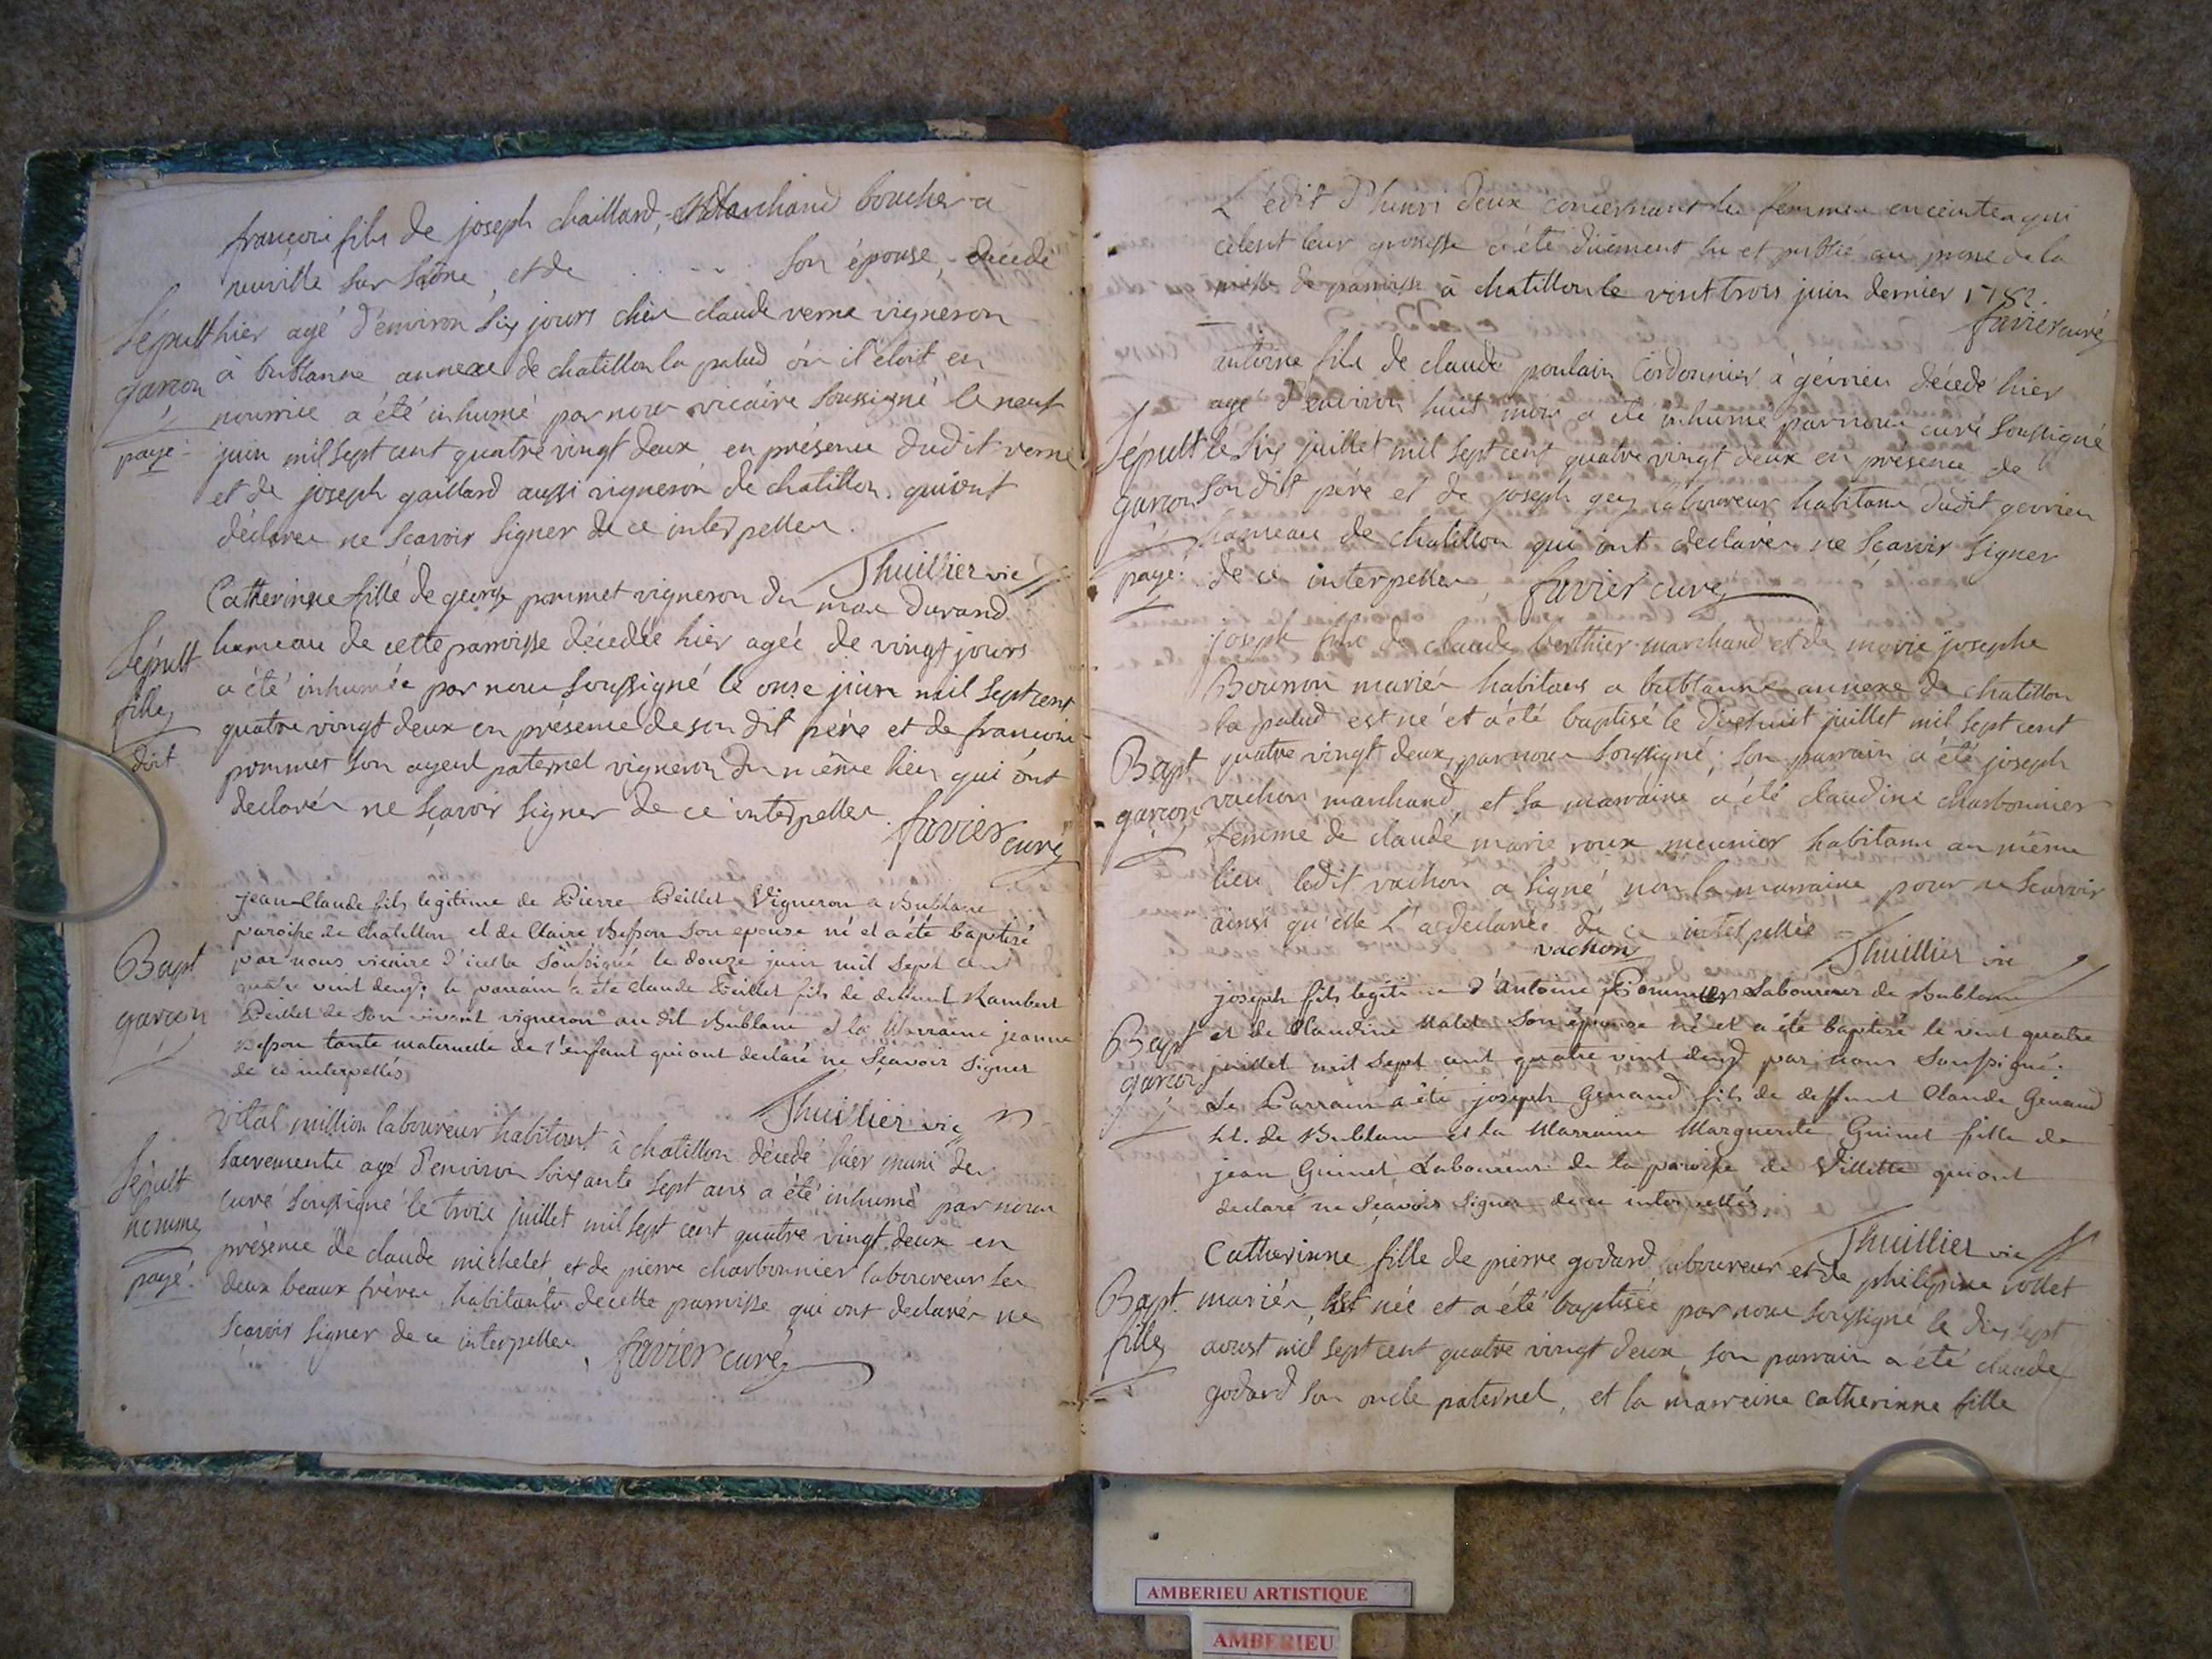 françois fils de joseph chaillard, Marchand boucher a
neuville sur saône, et de . . . . son épouse, décédé
hier agé d'environ six jours chés claude verne vigneron
à bublanne annexe de chatillon la palud où il étoit en
nourrice a été inhumé par nous vicaire soussigné le neuf
juin mil sept cent quatre vingt deux, en présence dudit verne
et de joseph gaillard aussi vigneron de chatillon. qui ont
déclarés ne scavoir signer de ce interpellés.
Thuillier vic
Sépult
garçon
payé
Catherinne fille de george pommet vigneron du mas durand
hameau de cette paroisse décedée hier agée de vingt jours
a été inhumée par nous soussigné le onze juin mil sept cent
quatre vingt deux en présence de son dit père et de françois
pommet son ayeul paternel vigneron du même lieu qui ont
declarés ne sçavoir signer de ce interpellés.
favier curé
Sépult
fille
doit
jean Claude fils legitime de Pierre Peillet Vigneron a Bublane
paroisse de Chatillon et de Claire Besson son epouse né et a été baptisé
par nous vicaire d'icelle soussigné le douze juin mil sept cent
quatre vint deux; le parrain a été claude Peillet fils de deffunt Rambert
Peillet de son vivant vigneron au dit Bublane et la Marraine jeanne
Besson tante maternelle de l'enfant qui ont declaré ne sçavoir signer
de ce interpellés
Thuillier vic
Bapt
garçon
vital million laboureur habitant à chatillon décedé hier muni des
sacrements agé d'environ soixante sept ans a été inhumé par nous
curé soussigné le trois juillet mil sept cent quatre vingt deux en
présence de claude michelet et de pierre charbonnier laboureur ses
deux beaux frères, habitants de cette paroisse qui ont declarés ne
sçavoir signer de ce interpellés, favier curé
Sépult
homme
payé.
L'édit d'henri deux concernant les femmes enceintes qui
celent leur grossesse a été düement lu et publié au prone de la
messe de paroisse à chatillon le vint trois juin dernier 1782.
favier curé
antoine fils de claude poulain Cordonnier à gévrieu décedé hier
agé d'environ huit mois a été inhumé par nous curé soussigné
le six juillet mil sept cent quatre vingt deux en présence de
son dit père et de joseph gey laboureur habitans dudit gevrieu
hameau de chatillon qui ont declarés ne sçavoir signer
de ce interpellés, favier curé
Sépult
garçon
payé.
joseph fils de claude berthier marchand et de marie josephe
Bourron mariés habitans a bublanne annexe de chatillon
la palud est né et a été baptisé le dixhuit juillet mil sept cent
quatre vingt deux, par nous soussigné; son parrain a été joseph
vachon marchand, et sa marraine a été claudine charbonnier
femme de claude marie roux meunier habitans au même
lieu, ledit vachon a signé, non la marraine pour ne scavoir
ainsi qu'elle l'a declarée de ce interpellée
vachon Thuillier vic
Bapt
garçon
joseph fils legitime d'Antoine Pommier Laboureur de Bublane
et de Claudine Malet son épouse né et a été baptisé le vint quatre
juillet mil sept cent quatre vint deux par nous soussigné.
Le Parrain a été joseph Genaud fils de deffunt Claude Genaud
de Bublane et la Marraine Marguerite Guinet fille de
jean Guinet Laboureur de la paroisse de Villette qui ont
declaré ne sçavoir signer de ce interpellés.
Thuillier vic
Bapt
garçon
Catherinne fille de pierre godard laboureur et de philippine vollet
mariés, est née et a été baptisée par nous soussigné le dix sept
aoust mil sept cent quatre vingt deux, son parrain a été claude
godard son oncle paternel, et la marreine catherinne fille
Bapt.
fille
AMBERIEU ARTISTIQUE
AMBERIEU